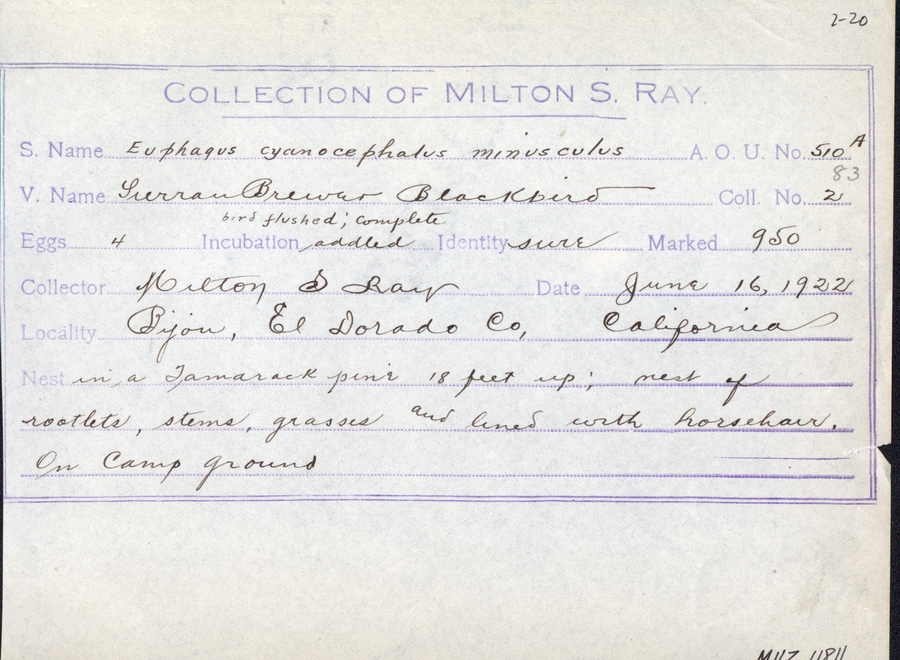 2-20
COLLECTION OF MILTON S. RAY.
S. Name Euphagus cyanocephalus minusculus A. O. U. No. 510 A
83
V. Name Sierran Brewer Blackbird Coll. No. 2
bird flushed; complete
Eggs 4 Incubation addled Identity sure Marked 950
Collector Milton S Ray Date June 16, 1922
Locality Bijou, El Dorado Co, California
Nest in a Tamarack pine 18 feet up; nest of
rootlets, stems, grasses and lined with horsehair.
On Camp ground